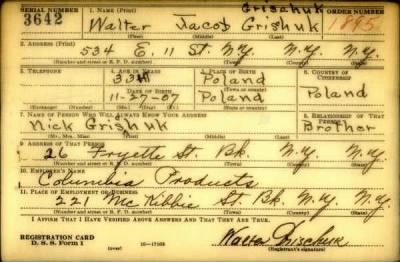 SERIAL NUMBER 1. NAME (Print) Grischuk ORDER NUMBER
3642 Walter Jacob Grishuk 1895
(First) (Middle) (Last)
2. ADDRESS (Print)
534 E. 11 St. N.Y. N.Y. N.Y.
(Number and street or R. F. D. number) (Town) (County) (State)
3. TELEPHONE 4. AGE IN YEARS 5. PLACE OF BIRTH 6. COUNTRY OF CITIZENSHIP
33 Poland
DATE OF BIRTH (Town or county) Poland
11-27-07 Poland
(Exchange) (Number) (Mo.) (Day) (Yr.) (State or country)
7. NAME OF PERSON WHO WILL ALWAYS KNOW YOUR ADDRESS 8. RELATIONSHIP OF THAT PERSON
Nick Grishuk Brother
(Mr., Mrs., Miss) (First) (Middle) (Last)
9. ADDRESS OF THAT PERSON
St. Bk. N.Y. N.Y.
(Number and street or R. F. D. number) (Town) (County) (State)
10. EMPLOYER'S NAME
Columbia Products
11. PLACE OF EMPLOYMENT OR BUSINESS
221 Mc Kibbie St. Bk. N.Y. N.Y.
(Number and street or R. F. D. number) (Town) (County) (State)
I AFFIRM THAT I HAVE VERIFIED ABOVE ANSWERS AND THAT THEY ARE TRUE.
REGISTRATION CARD
D. S. S. Form 1 (over) Walter Grischuk
(Registrant's signature)